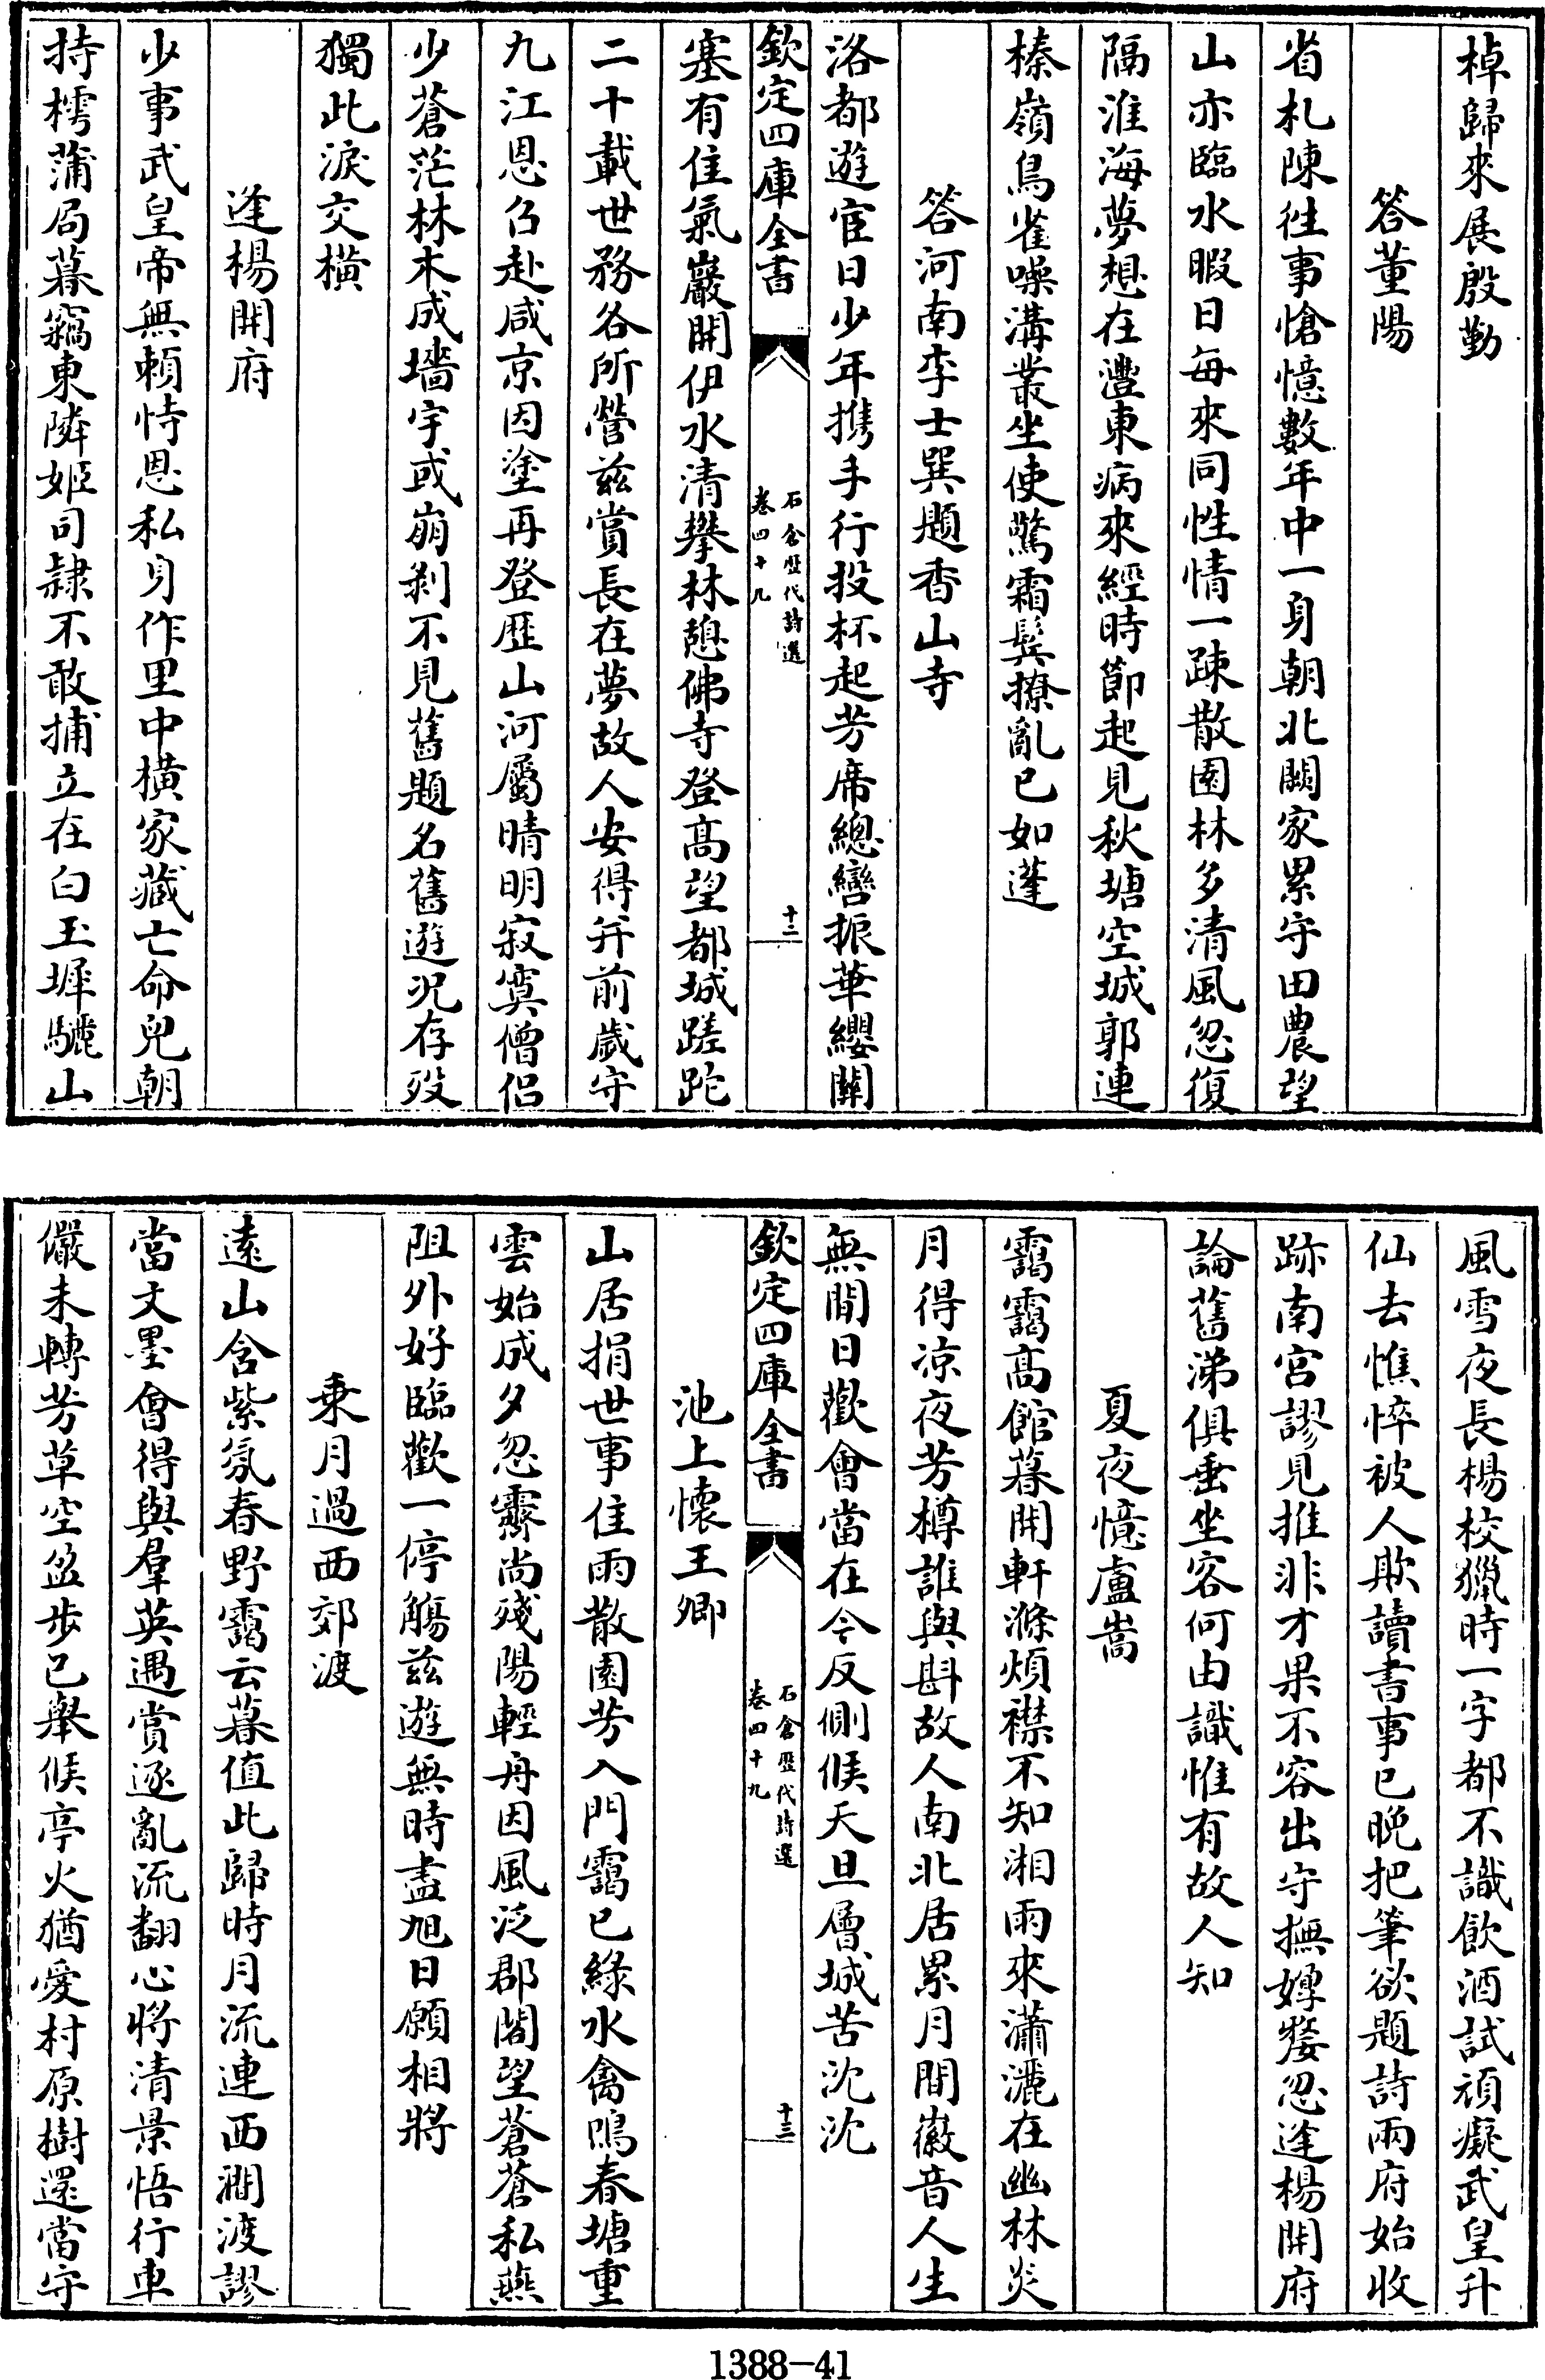 棹歸來展殷勤
答董陽
省札陳徃事愴憶數年中一身朝北闕家累守田農望
山亦臨水暇日每來同性情一踈散園林多清風忽復
隔淮海夢想在灃東病來經時節起見秋塘空城郭連
榛嶺鳥雀噪溝叢坐使驚霜鬂撩亂已如蓬
答河南李士巽題香山寺
洛都遊宦日少年携手行投杯起芳席總轡振華纓關
欽定四庫全書
石倉歴代詩選
卷四十九
十二
塞有佳氣巖開伊水清攀林憩佛寺登高望都城蹉跎
二十載世務各所營兹賞長在夢故人安得并前歲守
九江恩召赴咸京因塗再登歴山河屬晴明寂寞僧侣
少蒼茫林木成墻宇或崩剥不見舊題名舊遊况存殁
獨此淚交橫
逢楊開府
少事武皇帝無頼恃恩私身作里中橫家藏亡命兒朝
持樗蒲局暮竊東隣姬司隷不敢捕立在白玉墀驪山
風雪夜長楊校獵時一字都不識飲酒試頑癡武皇升
仙去憔悴被人欺讀書事已晚把筆欲題詩兩府始收
跡南宫謬見推非才果不容出守撫㷀嫠忽逢楊開府
論舊涕俱垂坐客何由識惟有故人知
夏夜憶盧嵩
靄靄高館暮開軒滌煩襟不知湘雨來瀟灑在幽林炎
月得凉夜芳樽誰與斟故人南北居累月間徽音人生
無閒日歡會當在今反側候天旦層城苦沈沈
欽定四庫全書
石倉歴代詩選
卷四十九
十三
池上懷王卿
山居捐世事佳雨散園芳入門靄已綠水禽鳴春塘重
雲始成夕忽霽尚殘陽輕舟因風泛郡閣望蒼蒼私燕
阻外好臨歡一停觴兹遊無時盡旭日願相將
乗月過西郊渡
逺山含紫氛春野靄云暮值此歸時月流連西澗渡謬
當文墨會得與羣英遇賞逐亂流翻心將清景悟行車
儼未轉芳草空盈歩已舉候亭火猶愛村原樹還當守
1388-41